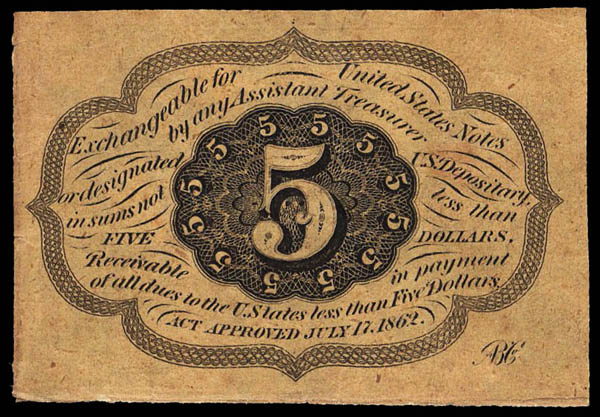 Exchangeable for United States Notes
by any Assistant Treasurer
or designated U.S. Depositary,
in sums not less than
FIVE DOLLARS.
Receivable in payment
of all dues to the U. States less than Five Dollars.
(ACT APPROVED JULY 17, 1862.)
5
5
5
5
5
5
5
5
5
5
5
5
5
ABCo